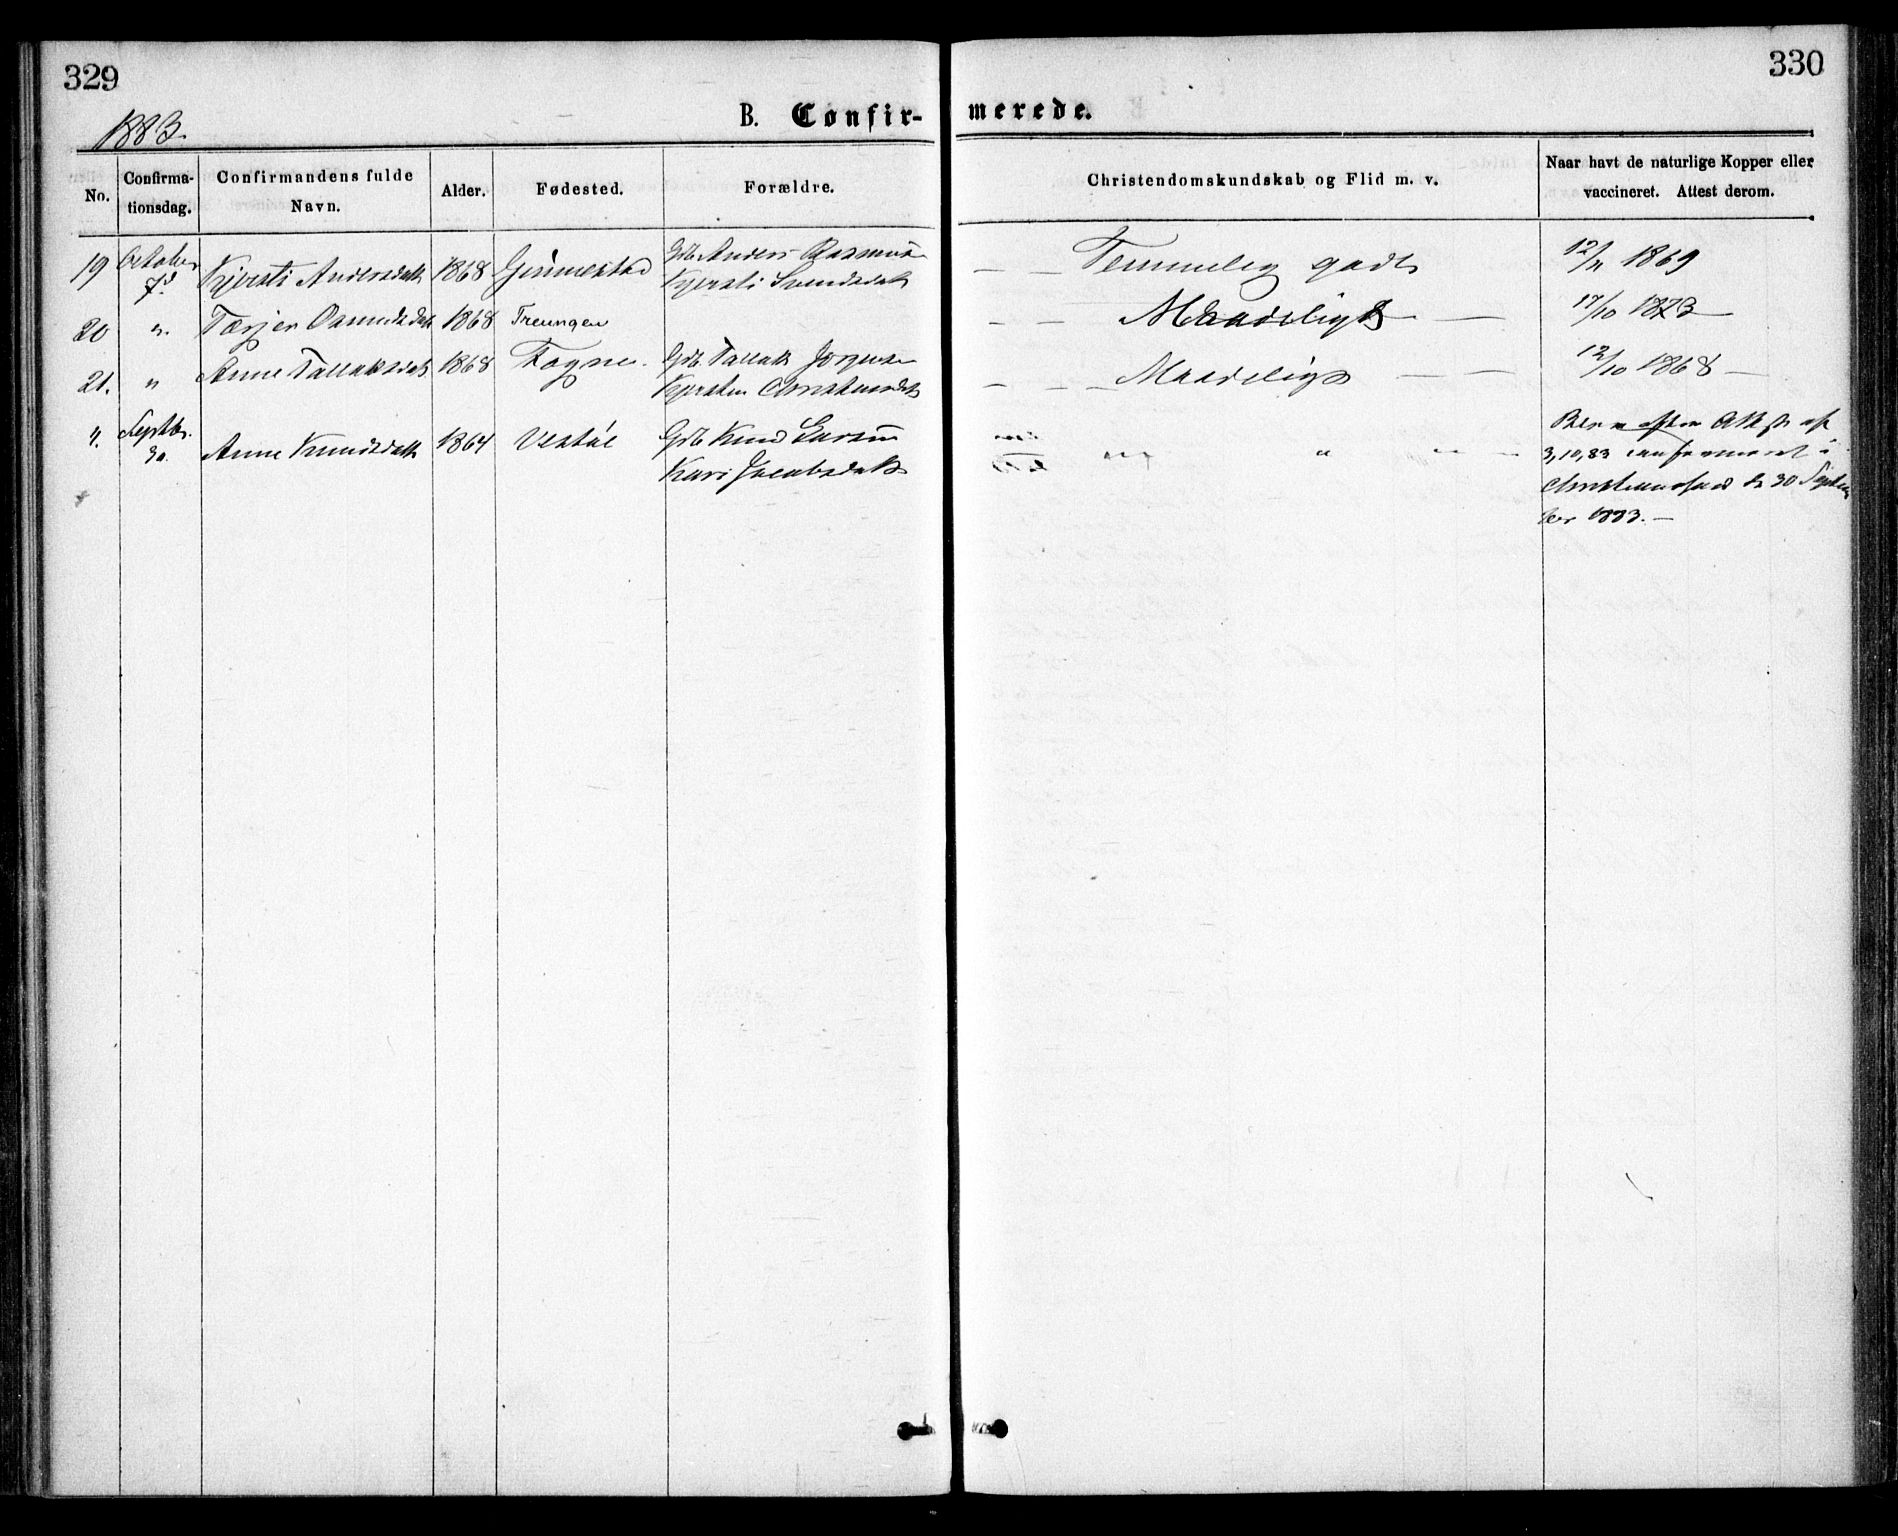 329
330
1883.
B. Confir-
merede.
No.
Confirma-
tionsdag.
Confirmandens fulde
Navn.
Alder.
Fødested.
Forældre.
Christendomskundskab og Flid m. v.
Naar havt de naturlige Kopper eller
vaccineret. Attest derom.
19 October Kjersti Andersdatt 1868 Gd. Anders
7d Kjersti Svendsdat
— — Temmelig godt 12/11 1869
20 " Tærjer 1868 Treungen
— — Maadeligt — — 17/10 1873 —
21. " Anne Tallaksdat 1868 Fogne. Gdb. Tallak Jørgensen
Kjersten
— — — Maadeligt — — 12/10 1868 —
". Septbr. Anne Knudsdatt 1864 Vestøl Gdb Knud Larsen
30. Kari Jacobsdatt
" " " Blev efter Attest af
3,10,83 confirmeret i
Christianssand d 30 Septem
ber 1883. —